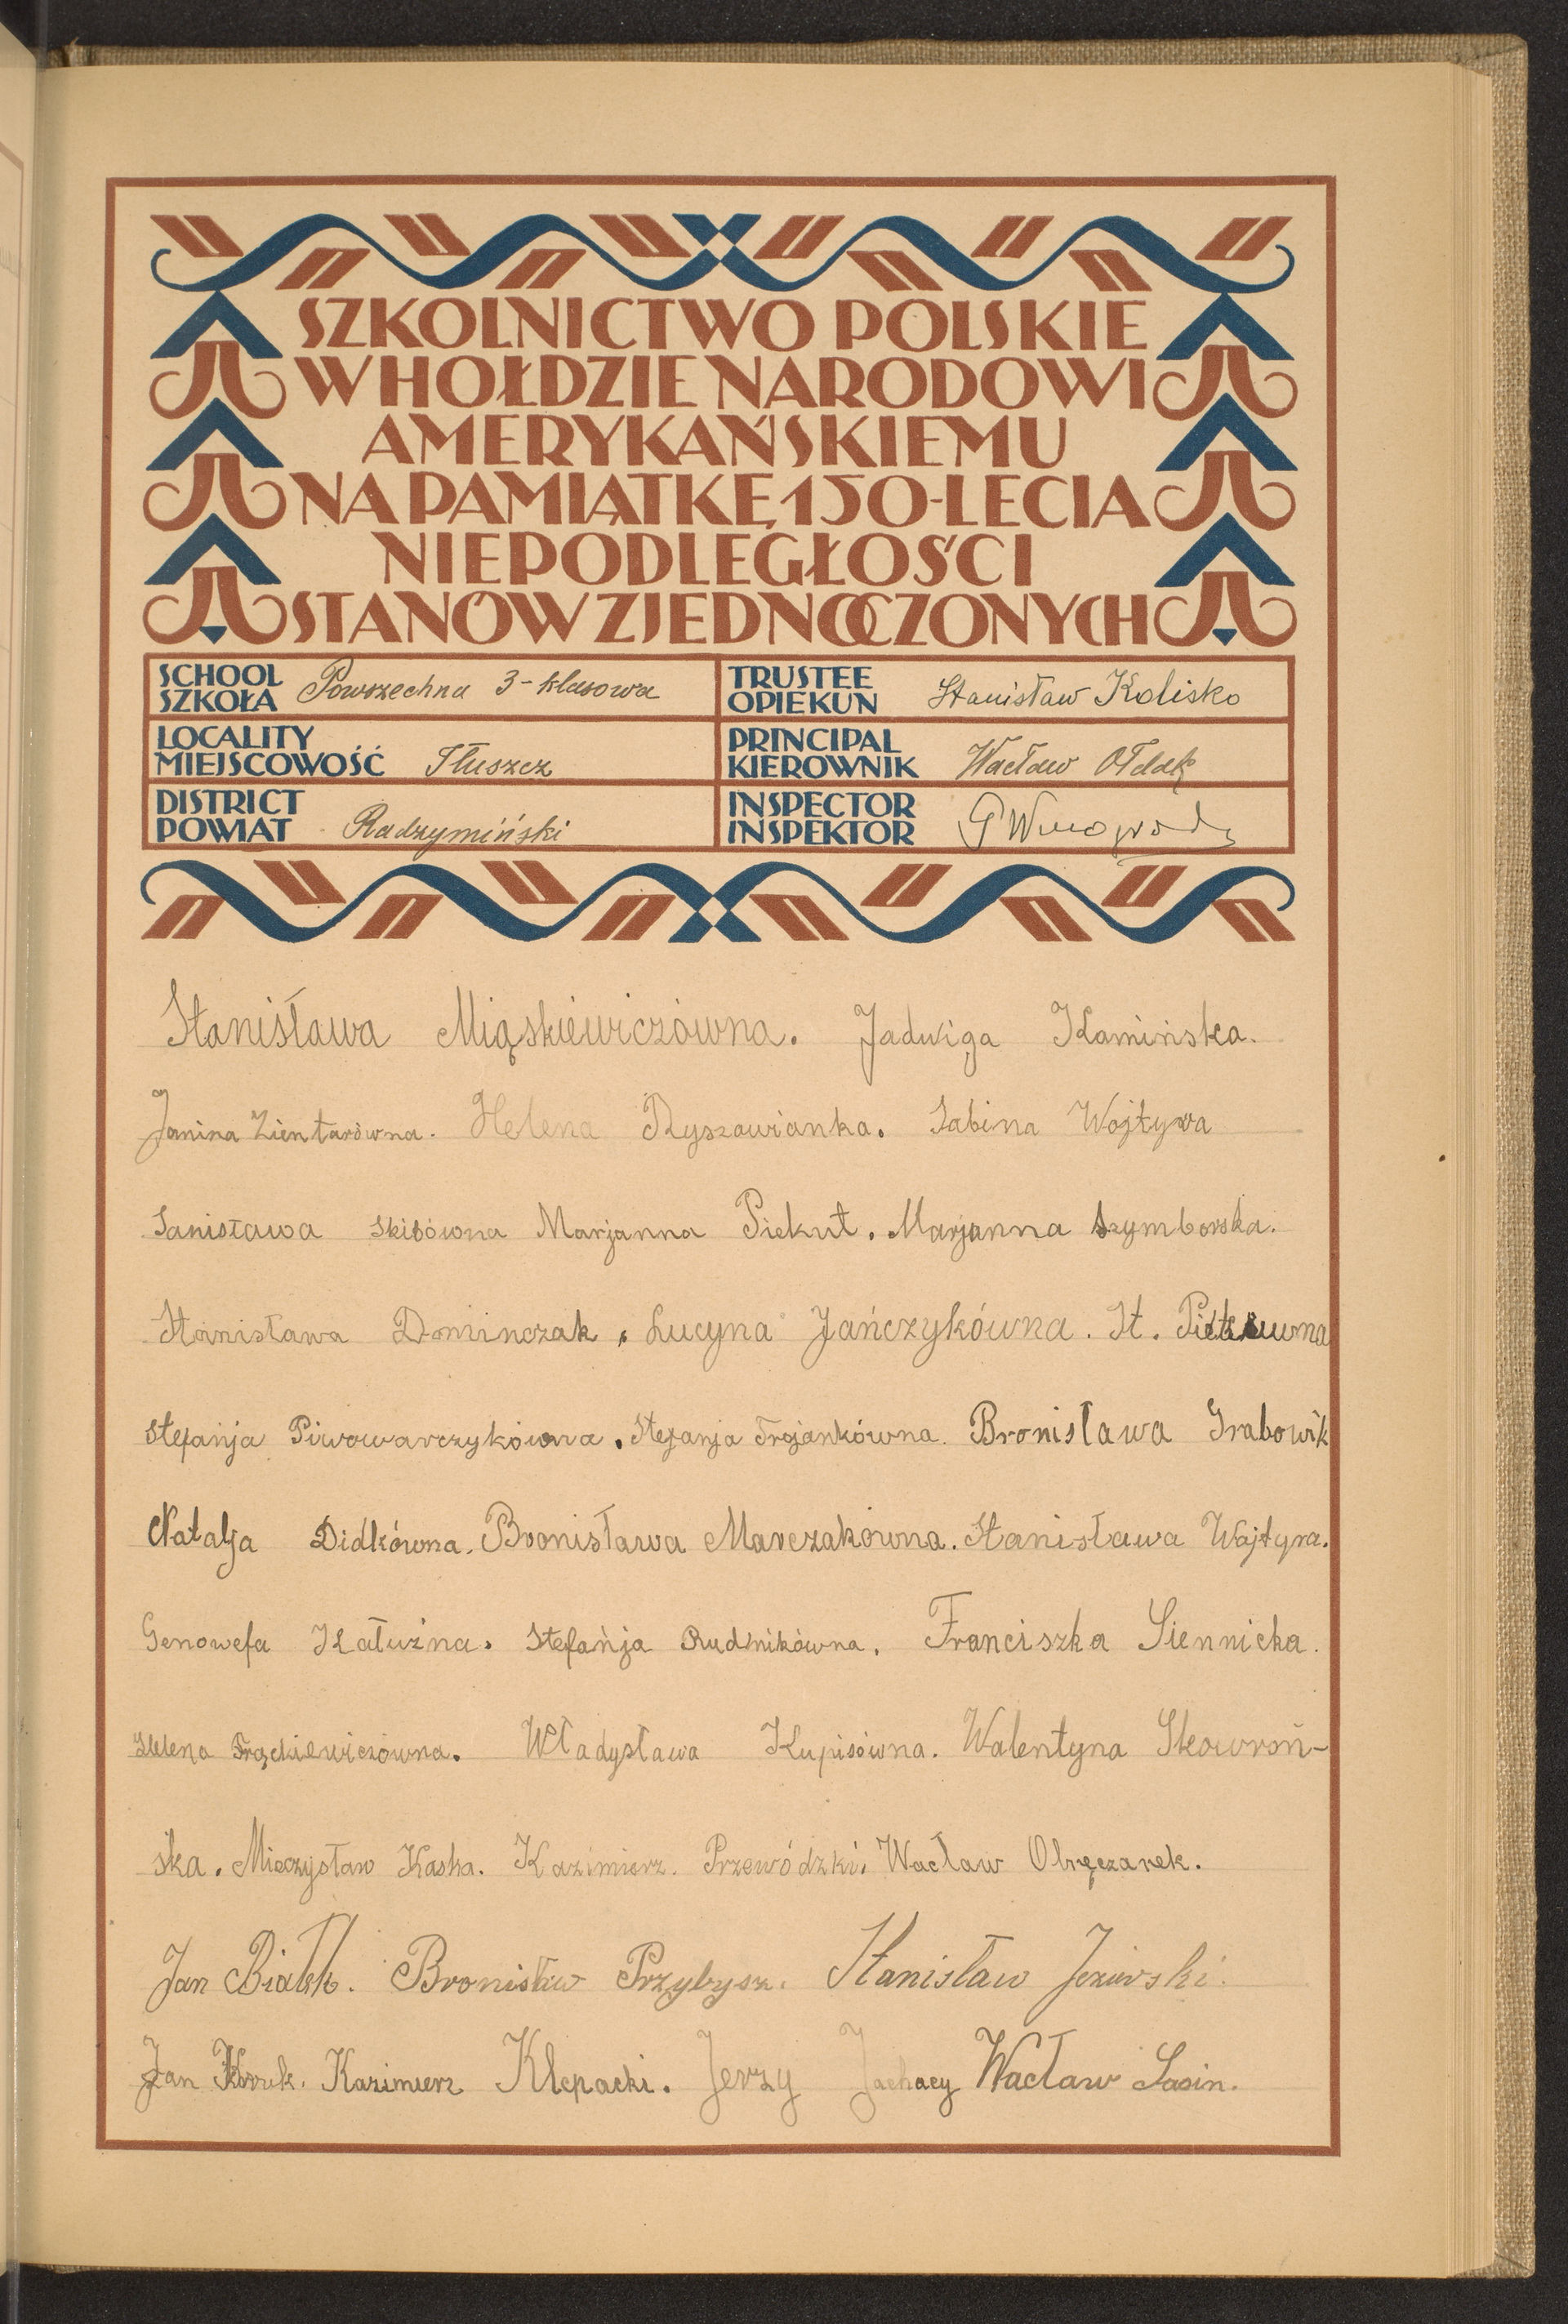 SZKOLNICTWO POLSKIE
W HOŁDZIE NARODOWI
AMERYKAŃSKIEMU
NA PAMIĄTKĘ 150-LECIA
NIEPODLEGŁOŚCI
STANÓW ZJEDNOCZONYCH
SCHOOL SZKOŁA Powszechna 3-klasowa
TRUSTEE OPIEKUN Stanisław Kolisko
LOCALITY MIEJSCOWOŚĆ Tłuszcz
PRINCIPAL KIEROWNIK Wacław Ołdak
DISTRICT POWIAT Radzymiński
INSPECTOR INSPEKTOR
Stanisława Miąskiewiczówna. Jadwiga Kamińska.
Janina Zientarówna. Helena Ryszawianka. Sabina Wojtyra
Sanisława Skibówna Marjanna Piekut. Marjanna Szymborska.
Stanisława Dominczak, Lucyna Jańczykówna. St.
Stefańja Piwowarczykówna. Stefanja Trojankówna. Bronisława Grabowik
Natalja Didkówna. Bronisława Marczakówna. Stanisława Wojtyra.
Genowefa Kałużna. Stefańja Rudnikówna. Franciszka Siennicka.
Helena Frąckiewiczówna. Władysława Kupisówna. Walentyna Skowroń-
ska. Mieczysław Kaska. Kazimierz. Przewódzki. Wacław Obręczarek.
Jan Białek. Bronisław Przybysz. Stanisław Jeziorski.
Jan Kazimierz Klepacki. Jerzy Jachacy Wacław Sasin.